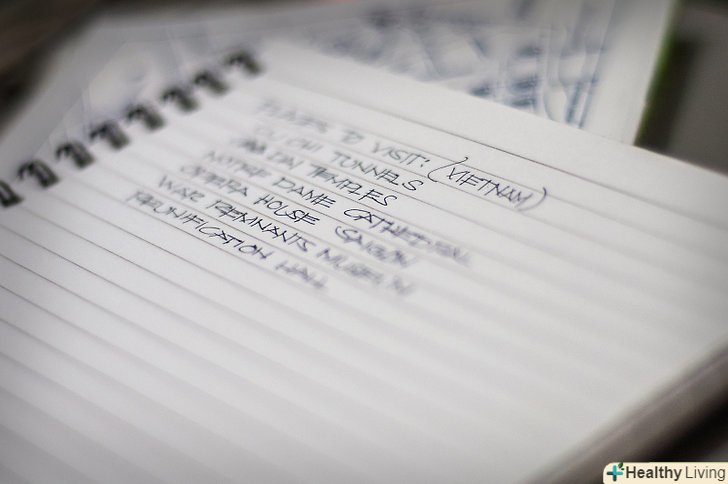 PLACES TO VISIT: (VIETNAM)
CU CHI TUNNELS
TEMPLES
NOTRE DAME CATHEDRAL
OPERA HOUSE SAIGON
WAR REMNANTS MUSEUM
REUNIFICATION HALL
Healthy Living